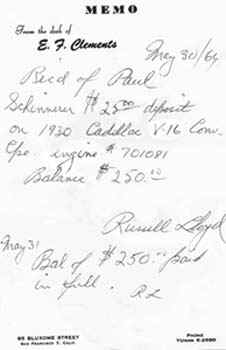 MEMO
From the desk of
E. F. Clements
May 30/64
Rec'd of Paul
Schinnerer $25.00 deposit
on 1930 Cadillac V-16 Conv
Cpe. engine # 701081
Balance $250.00
Russell Lloyd
May 31
Bal of $250.00 paid
in full. RL
95 BLUXOME STREET
SAN FRANCISCO 7, CALIF.
PHONE
YUkon 6-2590